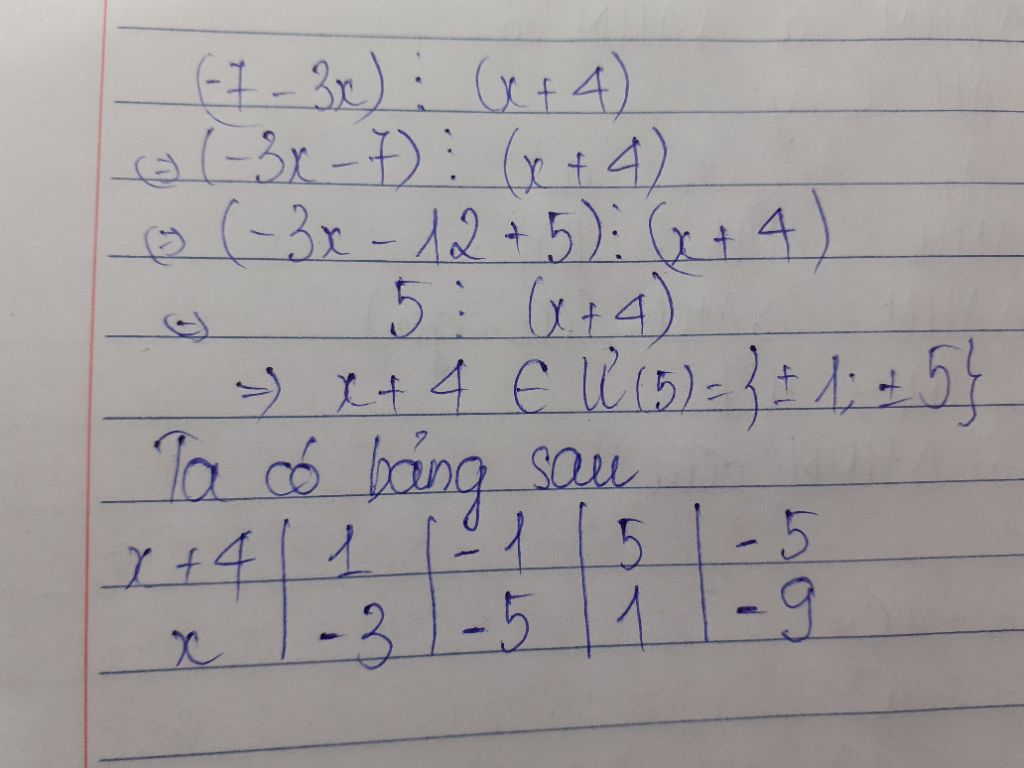 (-7 - 3x) ⋮ (x + 4)
⇔ (-3x - 7) ⋮ (x + 4)
⇔ (-3x - 12 + 5) ⋮ (x + 4)
⇔ 5 ⋮ (x + 4)
⇒ x + 4 ∈ Ư(5) = {± 1; ± 5}
Ta có bảng sau
x + 4 | 1 | - 1 | 5 | - 5
x | - 3 | - 5 | 1 | - 9